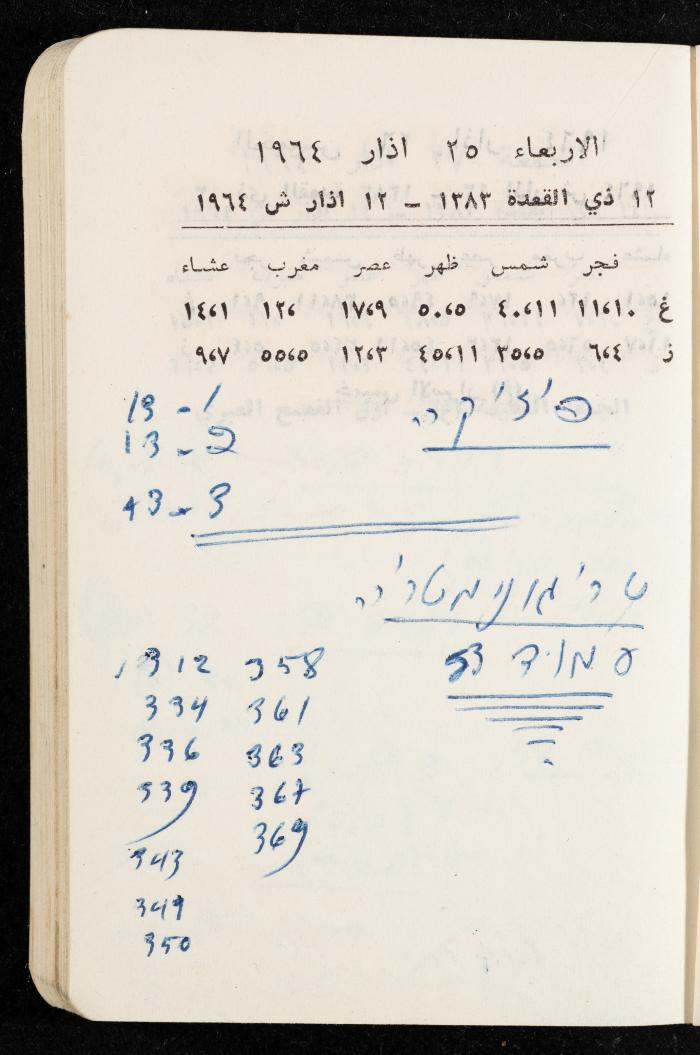 الاربعاء ٢٥ اذار ١٩٦٤
١٢ ذي القعدة ١٣٨٣ – ١٢ اذار ش ١٩٦٤
فجر شمس ظهر عصر مغرب عشاء
غ ١١،١٠ ٤٠،١١ ٥٠،٥ ١٧،٩ ١٢، ١٤،١
ز ٦،٤ ٣٥،٥ ٤٥،١١ ١٢،٣ ٥٥،٥ ٩،٧
פיזיקה
19 - 1
13 - 2
43 - 3
טריגונימטריה
עמוד 53
312 358
334 361
336 363
339 367
343 369
349
350